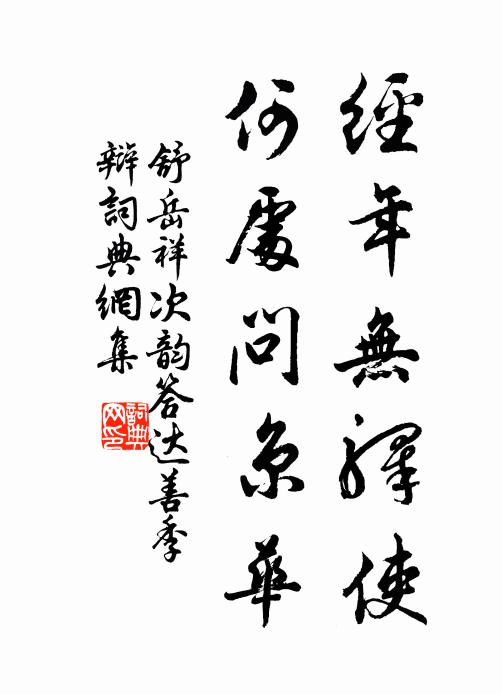 經年無驛使
何處問京華
舒岳祥次韵答达善季
辯詞典網集
詞典网印